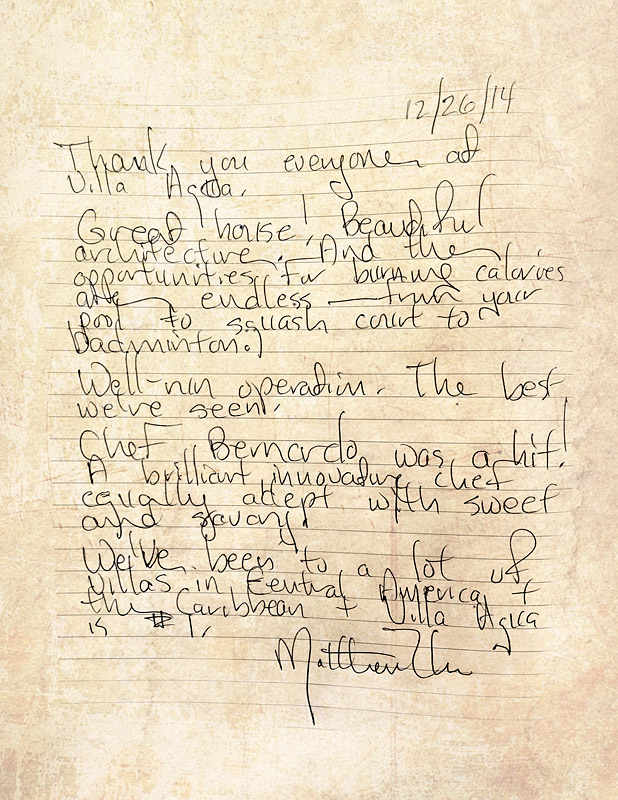 12/26/14
Thank you everyone at
Villa Agua.
Great house! Beautiful
architecture. And the
opportunities for burning calories
are endless — from your
pool to squash court to
badminton.)
Well-run operation. The best
we've seen.
Chef Bernardo was a hit!
A brilliant innovative chef
equally adept with sweet
and savory!
We've been to a lot of
villas in Central America +
the Caribbean + Villa Agua
is #1.
Matthew